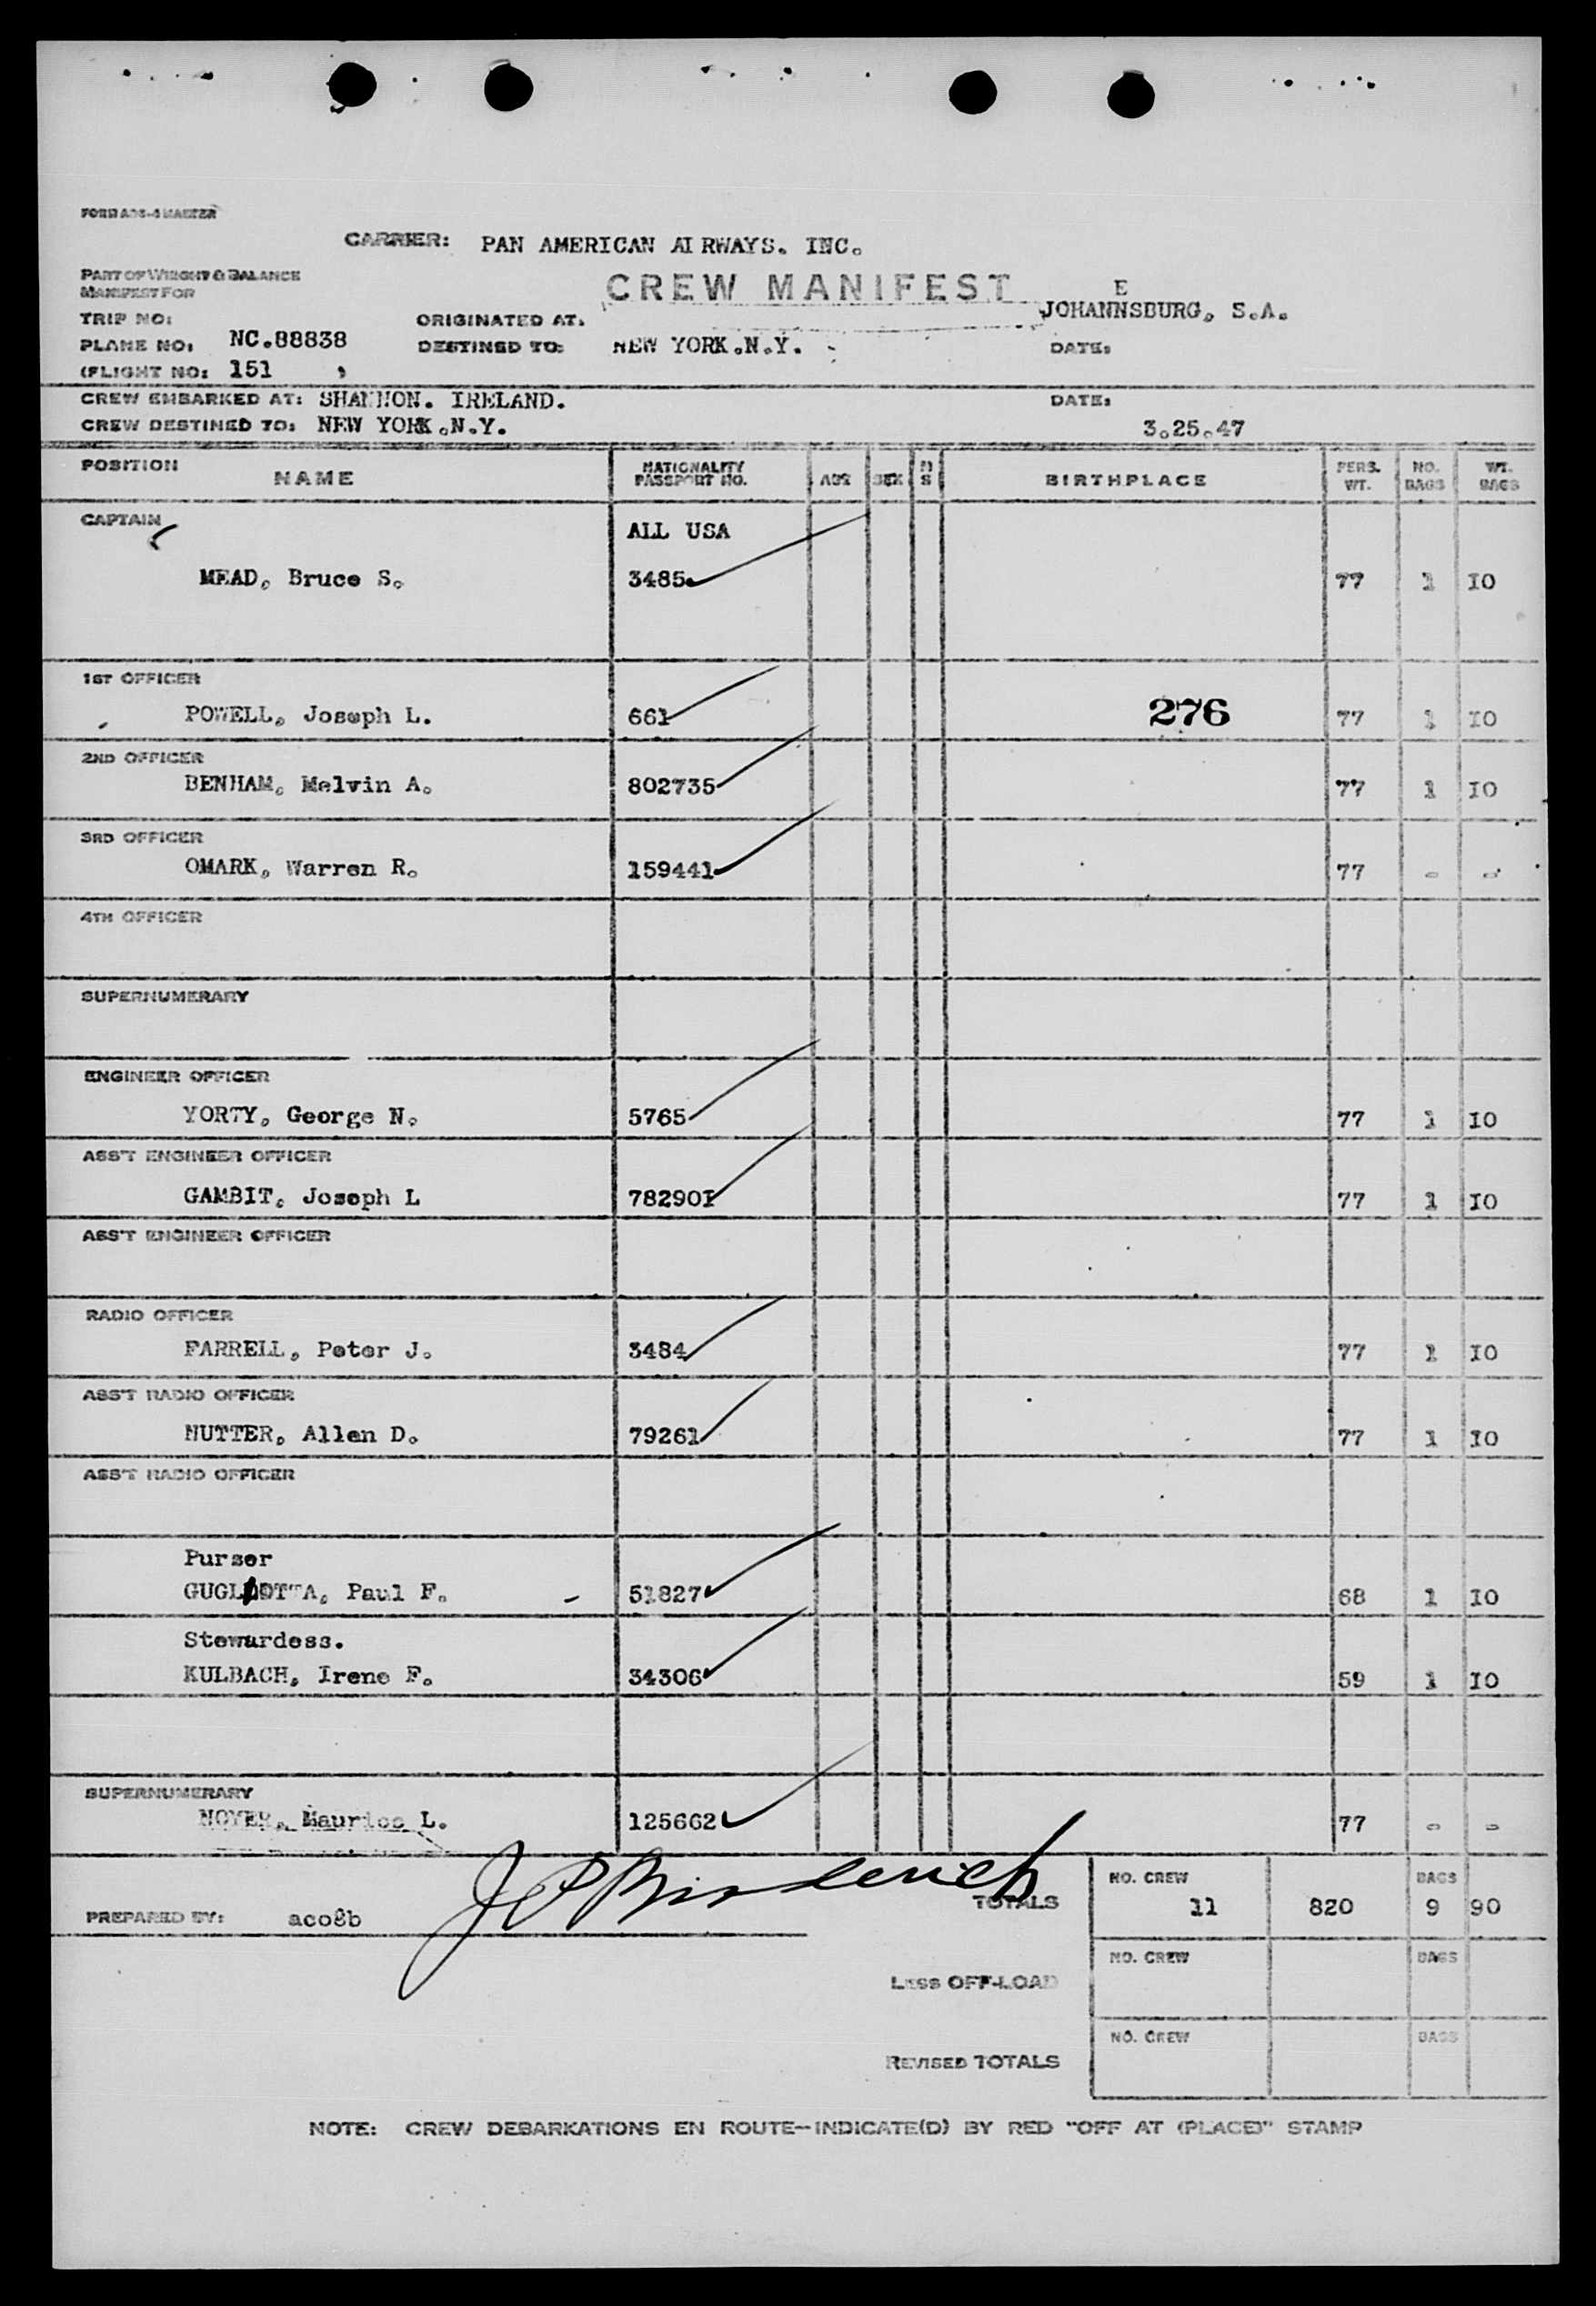 FORM ADS-4 MASTER
CARRIER: PAN AMERICAN AIRWAYS. INC.
PART OF WEIGHT & BALANCE
MANIFEST FOR
CREW MANIFEST
E
JOHANNSBURG, S.A.
TRIP NO:
ORIGINATED AT:
PLANE NO: NC.88838
DESTINED TO: NEW YORK.N.Y.
DATE:
(FLIGHT NO: 151
CREW EMBARKED AT: SHANNON. IRELAND.
DATE:
CREW DESTINED TO: NEW YORK.N.Y.
3.25.47
POSITION NAME NATIONALITY PASSPORT NO. AGE SEX M S BIRTHPLACE PERS. WT. NO. BAGS WT. BAGS
CAPTAIN
ALL USA
MEAD, Bruce S. 3485 77 1 10
1ST OFFICER
POWELL, Joseph L. 661 276 77 1 10
2ND OFFICER
BENHAM, Melvin A. 802735 77 1 10
3RD OFFICER
OMARK, Warren R. 159441 77 - -
4TH OFFICER
SUPERNUMERARY
ENGINEER OFFICER
YORTY, George N. 5765 77 1 10
ASS'T ENGINEER OFFICER
GAMBIT, Joseph L 782901 77 1 10
ASS'T ENGINEER OFFICER
RADIO OFFICER
FARRELL, Peter J. 3484 77 1 10
ASS'T RADIO OFFICER
NUTTER, Allen D. 79261 77 1 10
ASS'T RADIO OFFICER
Purser
GUGLIOTTA, Paul F. - 51827 68 1 10
Stewardess.
KULBACH, Irene F. 34306 59 1 10
SUPERNUMERARY
NOYER, Maurice L. 125662 77 - -
TOTALS NO. CREW 11 820 BAGS 9 90
PREPARED BY: aco8b
LESS OFF-LOAD NO. CREW BAGS
REVISED TOTALS NO. CREW BAGS
NOTE: CREW DEBARKATIONS EN ROUTE--INDICATE(D) BY RED "OFF AT (PLACE)" STAMP